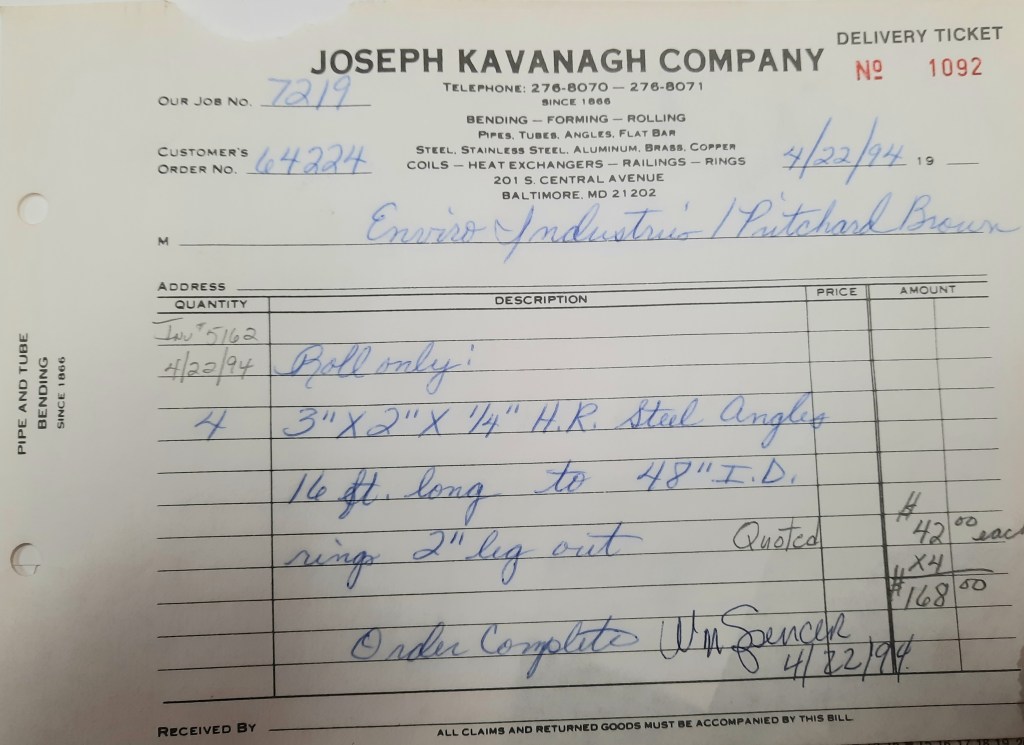 DELIVERY TICKET
JOSEPH KAVANAGH COMPANY
Nº 1092
TELEPHONE: 276-8070 — 276-8071
OUR JOB NO. 7219
SINCE 1866
BENDING — FORMING — ROLLING
PIPES, TUBES, ANGLES, FLAT BAR
STEEL, STAINLESS STEEL, ALUMINUM, BRASS, COPPER
CUSTOMER'S
ORDER NO. 64224
COILS — HEAT EXCHANGERS — RAILINGS — RINGS
4/22/94 19
201 S. CENTRAL AVENUE
BALTIMORE, MD 21202
M Enviro Industries / Pritchard Brown
ADDRESS
QUANTITY DESCRIPTION PRICE AMOUNT
Inv# 5162
4/22/94 Roll only:
4 3" X 2" X 1/4" H.R. Steel Angles
16 ft. long to 48" I.D.
rings 2" leg out Quoted $42.00 each
X4
$168.00
Order Complete Wm Spencer
4/22/94
RECEIVED BY
ALL CLAIMS AND RETURNED GOODS MUST BE ACCOMPANIED BY THIS BILL
PIPE AND TUBE
BENDING
SINCE 1866